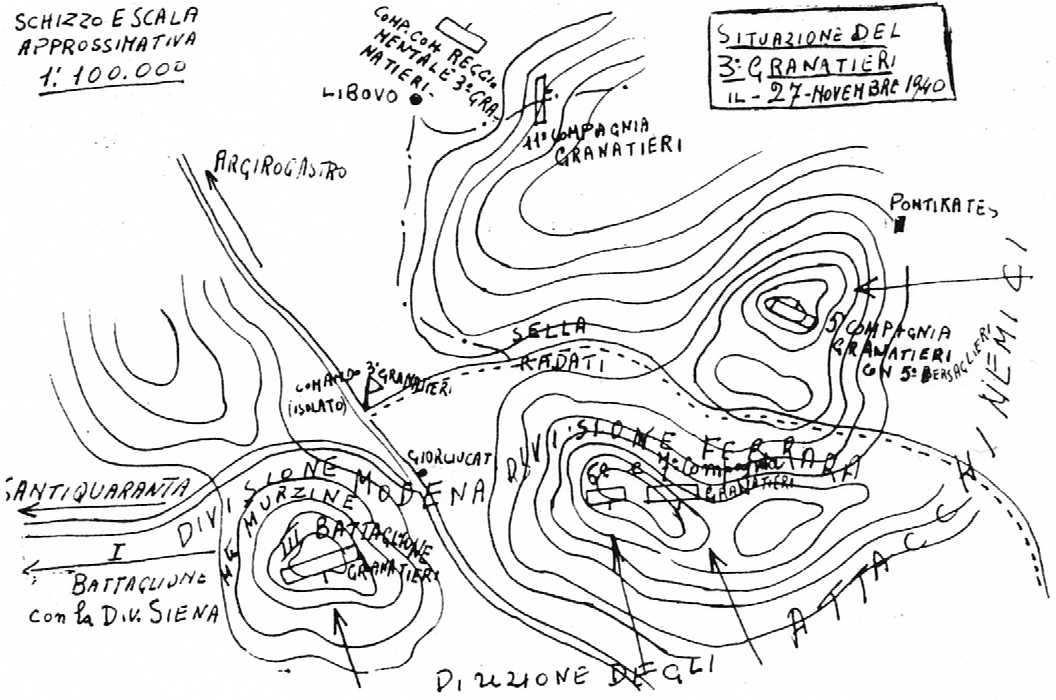 SCHIZZO E SCALA
APPROSSIMATIVA
1: 100.000
COMP. COM. REGGI
MENTALE 3º GRA-
NATIERI-
SITUAZIONE DEL
3º GRANATIERI
IL - 27-NOVEMBRE 1940
LIBOVO
11ª COMPAGNIA
GRANATIERI
ARGIROCASTRO
PONTIKATES
5ª COMPAGNIA
GRANATIERI
CON 5º BERSAGLIERI
SELLA
RADATI
COMANDO 3º GRANATIERI
(ISOLATO)
GIORGUCAT
DIVISIONE FERRARA
6ª e 7ª Compagnia
GRANATIERI
SANTIQUARANTA
DIVISIONE MODENA
MURZINE
III BATTAGLIONE
GRANATIERI
I
BATTAGLIONE
con la DIV. SIENA
DIREZIONE DEGLI
ATTACCHI NEMICI